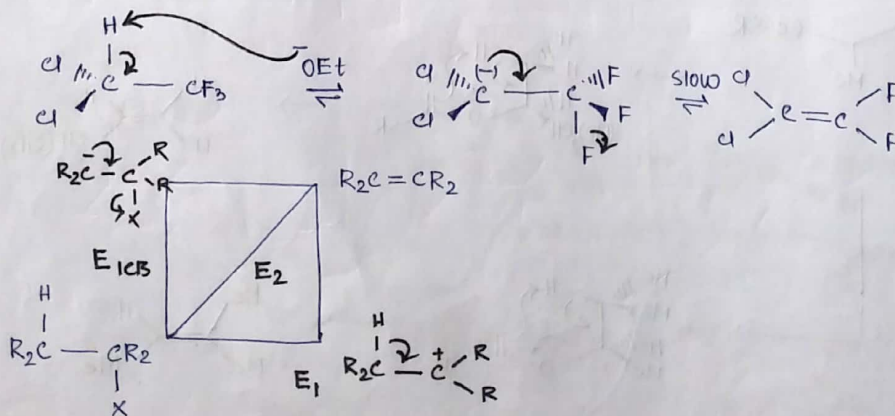 H
Cl C CF3 -OEt ⇌ Cl C(-) C F slow ⇌ Cl C=C F
Cl Cl F Cl F
F
R2C - C R
R
X
R2C=CR2
E1CB
E2
H
R2C — CR2
X
E1
H
R2C — C+ R
R